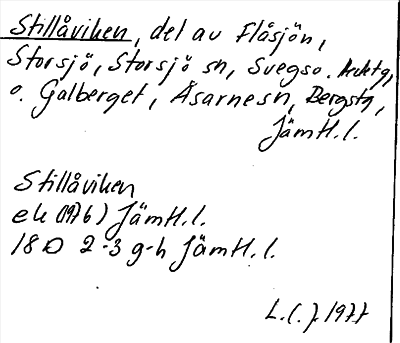 Stillåviken, del av Flåsjön,
Storsjö, Storsjö sn, Svegso. Arvktg,
o. Galberget, Åsarnesn, Bergstg,
Jämtl.l.
Stillåviken
ek (1976) Jämtl.l.
18 D 2-3 g-h Jämtl.l.
L.C.J. 1977